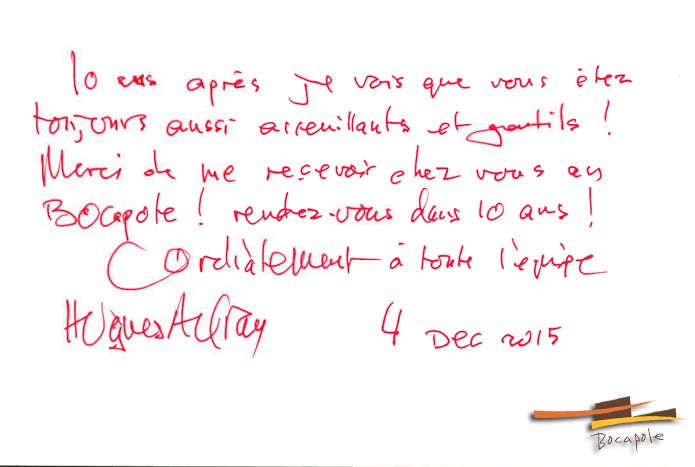 10 ans après je vois que vous êtez
toujours aussi acceuillants et gentils !
Merci de me recevoir chez vous au
BOCAPOLE ! rendez-vous dans 10 ans !
Cordialement à toute l'équipe
HUgues AUfray 4 DEC 2015
Bocapole